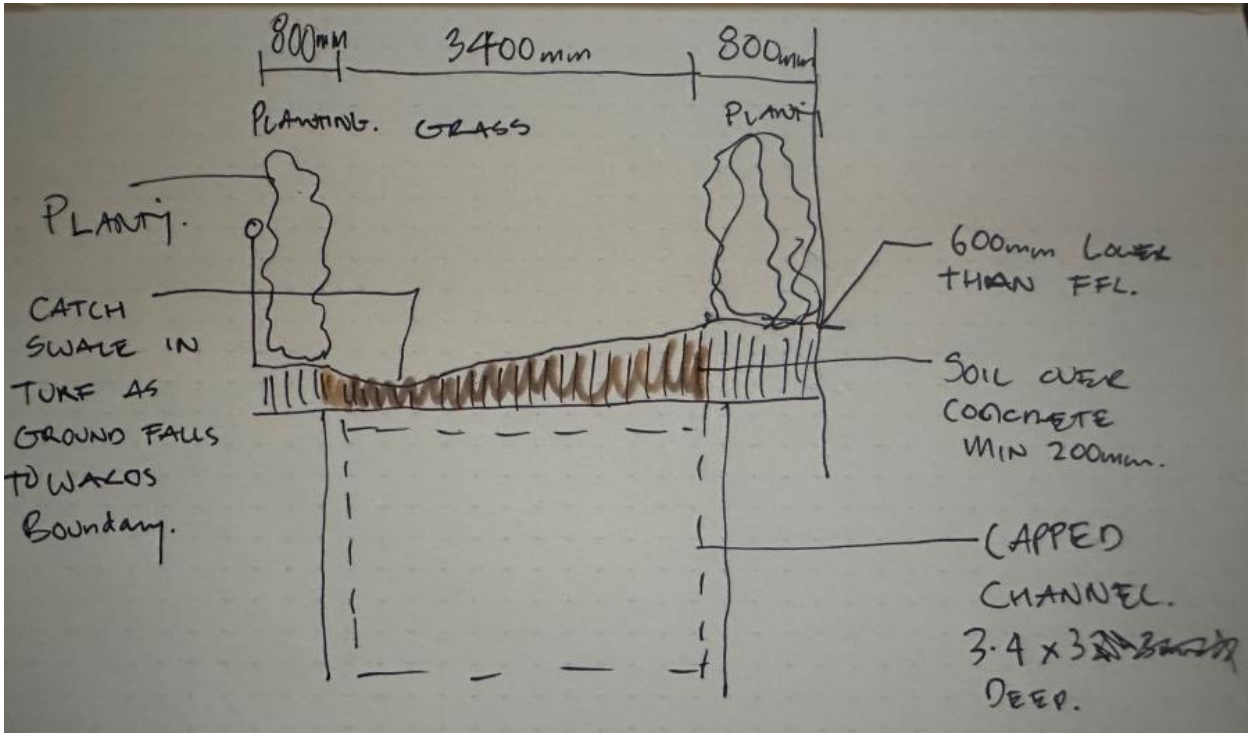 800mm 3400mm 800mm
PLANTING. GRASS PLANTj
PLANTj.
CATCH
SWALE IN
TURF AS
GROUND FALLS
TOWARDS
Boundary.
600mm LOWER
THAN FFL.
SOIL OVER
CONCRETE
MIN 200mm.
CAPPED
CHANNEL.
3.4 x 3
DEEP.